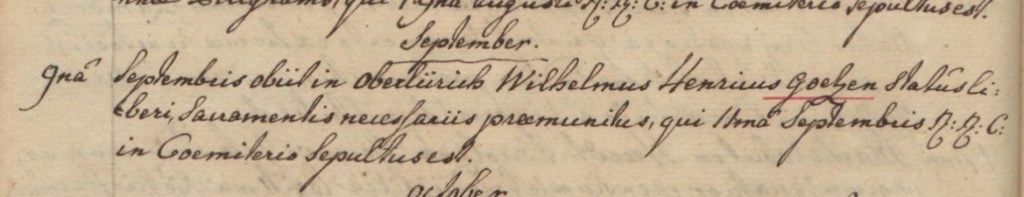 Lingrams, qui Augusti N: N: C: in Coemiterio sepultus est.
September.
9nâ Septembris obiit in obertürich Wilhelmus Henricus Goetzen statûs li:
beri, Sacramentis necessariis praemunitus, qui 11mâ Septembris N: N: C:
in Coemiterio sepultus est.
october